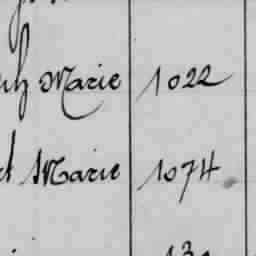 Marie 1022
Marie 1074